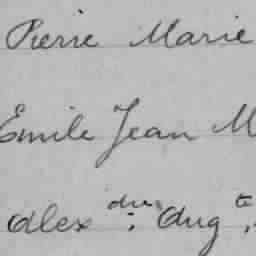 Pierre Marie
Emile Jean M
Alex dre. Aug te.